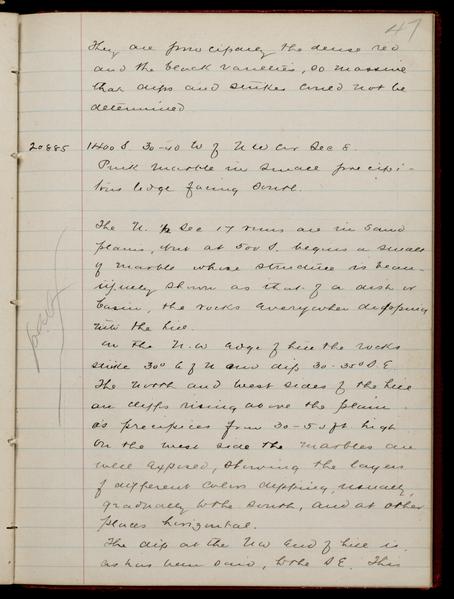 47
They are principally the dense red
and the black varieties, so massive
that dips and strikes could not be
determined
20885 1400 S. 30-40 W of NW Cor Sec 8.
Pink marble in small precipi-
tous ledge facing South.
The N. ½ Sec 17 runs are in Sand
plains, but at 500 S. begins a small
of marble whose structure is beau-
tifully shown as that of a dish or
basin, the rocks everywhere dipping
into the hill.
On the N.W edge of hill the rocks
strike 30° E of N and dip 30-35° S.E
The North and west sides of the hill
are cliffs rising above the plain
as precipices from 30-50 ft high
On the west side the marbles are
well exposed, showing the layers
of different colors dipping, usually,
gradually to the South, and at other
places horizontal.
The dip at the NW End of hill is,
as has been said, to the S E. This